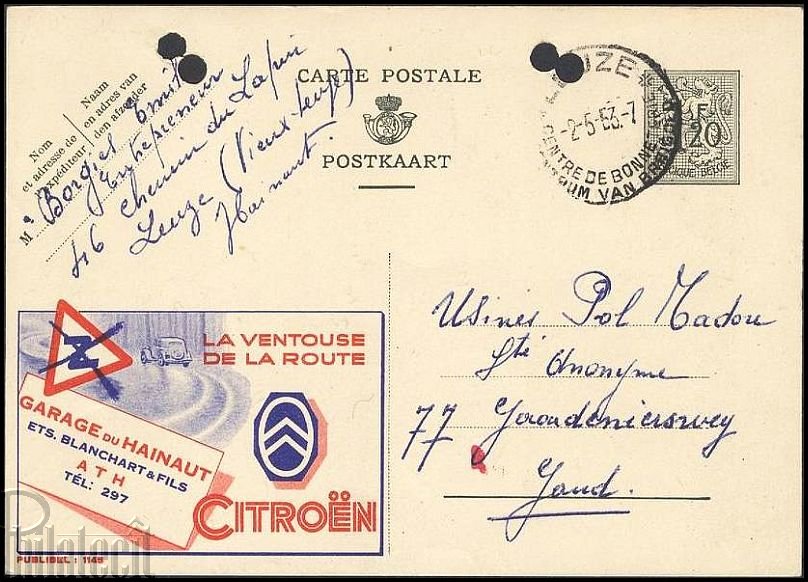 CARTE POSTALE
POSTKAART
Nom
et adresse de
l'expéditeur
Naam
en adres van
den afzender
M
Borgies Emile
Entrepreneur
46 Chemin du Lapin
Leuze (Vieux-Leuze)
Hainaut
LEUZE
-2-5-53.-7
CENTRE DE BONNE
VAN
F
20
BELGIQUE BELGIE
Usines Pol Madou
Sté Anonyme
77
Gand.
LA VENTOUSE
DE LA ROUTE
GARAGE DU HAINAUT
ETS. BLANCHART & FILS
ATH
TÉL: 297
CITROËN
PUBLIBEL : 1145
Philateeît